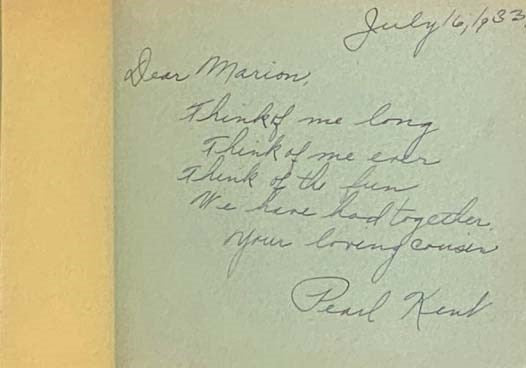 July 16, 1933.
Dear Marion,
Think of me long
Think of me ever
Think of the fun
We have had together.
Your loving cousin
Pearl Kent